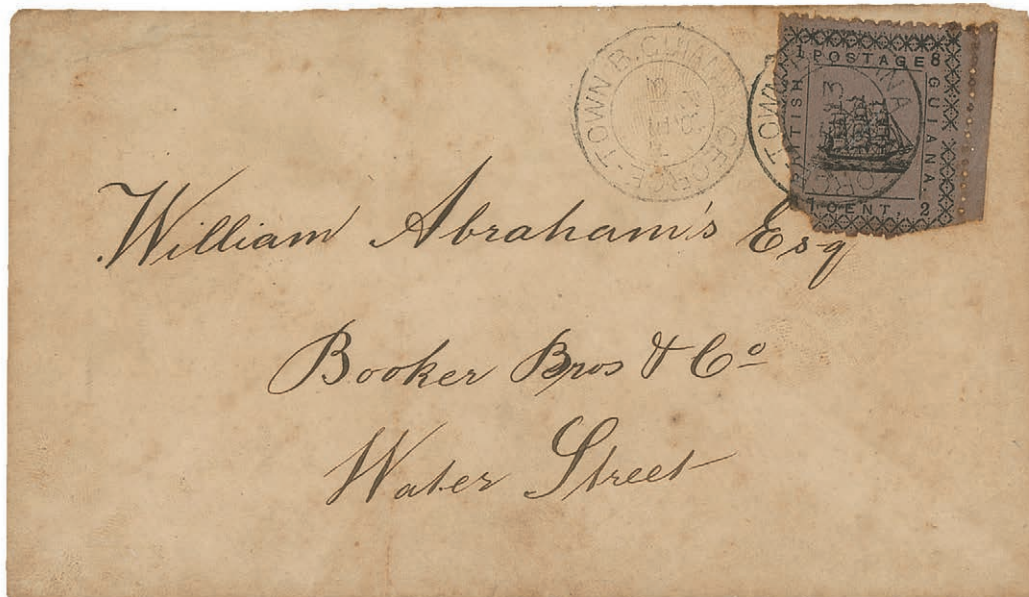 GEORGE-TOWN B. GUIANA
1 POSTAGE 8
BRITISH
GUIANA.
1 CENT. 2
William Abraham's Esq
Booker Bros & Co
Water Street